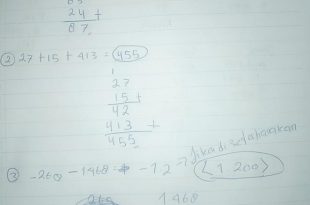 24 +
87
② 27 + 15 + 413 = 455
1
27
15 +
42
413 +
455
③ -268 - 1468 = -12 jika di
1.200
1468